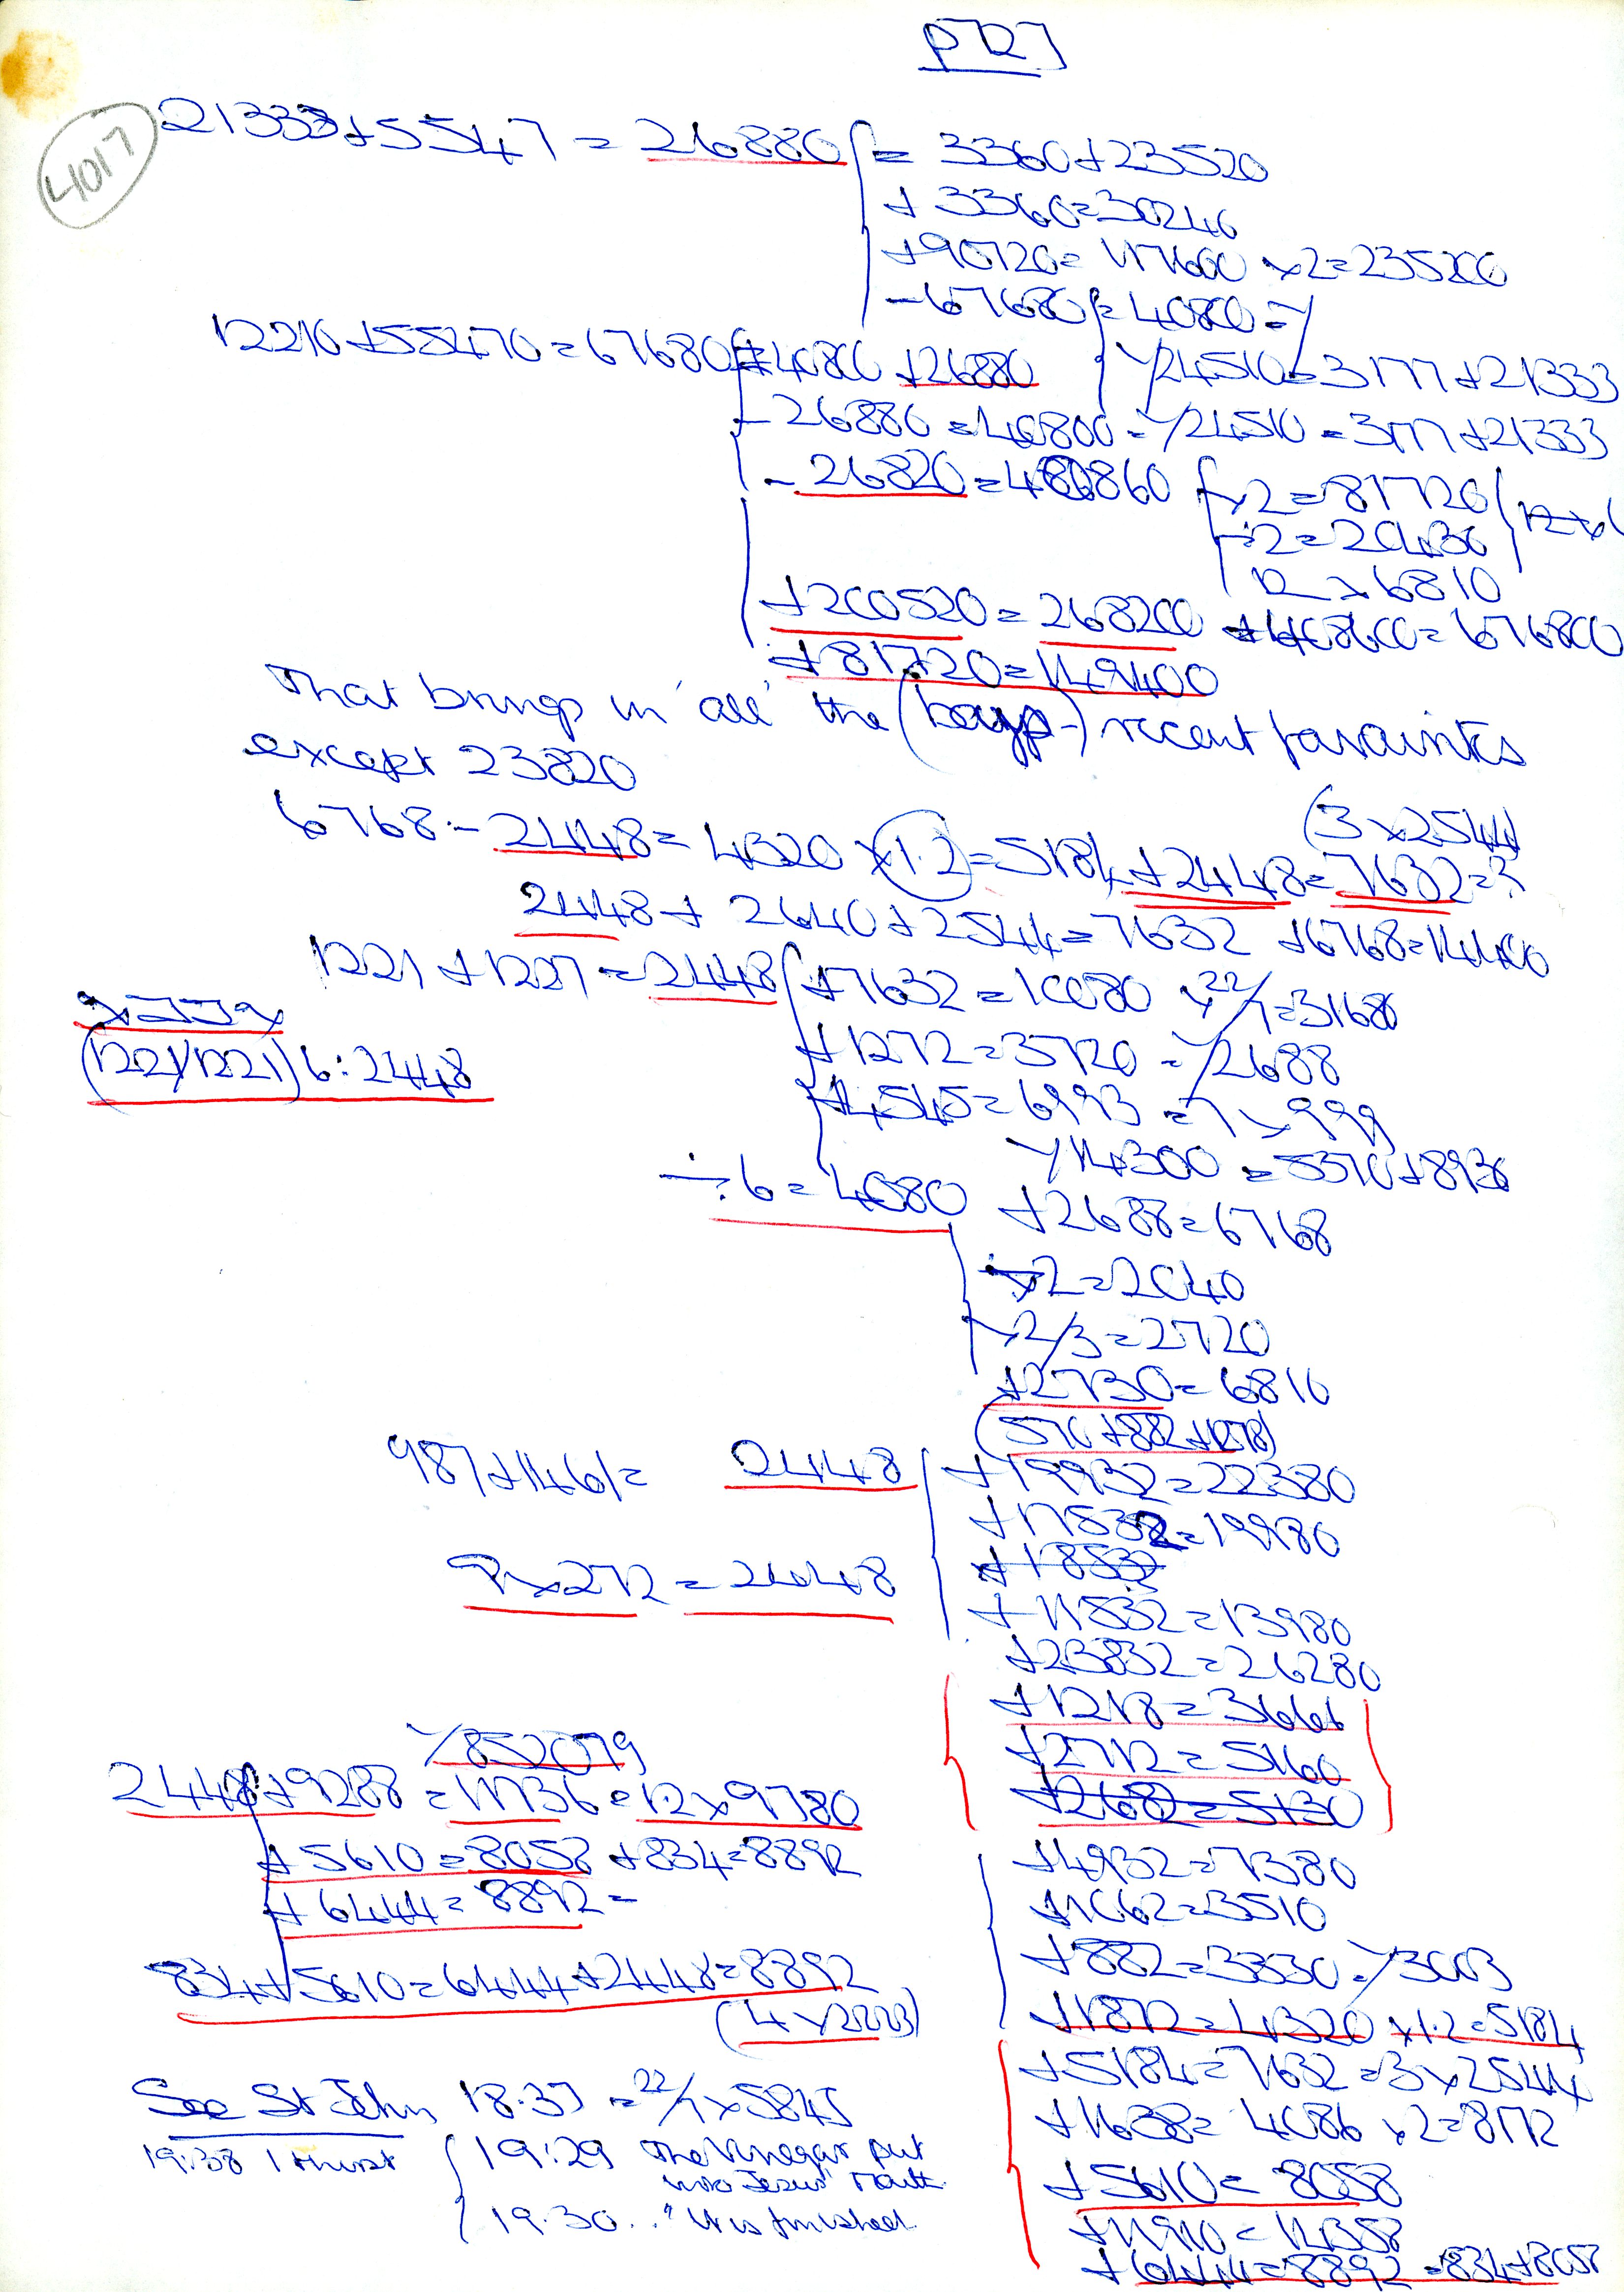 4017
21333+5547 = 26880 { = 3360+23520
+ 3360=30240
+90720= 117600 x2=235200
-67680 { = 40800 =Y
12210+55470=67680 { =40800 +26880
Y24510=3177+21333
-26880 =40800 =Y24510 =3177+21333
-26820=40860 { x2=81720
÷2=20430
12 x 6810
+200520= 268200 +408600=676800
+81720=149400
That brings in 'all' the recent favourites
except 23820
6768 - 2448= 4320 x(1.2)=5184+2448=7632=3
(3x2544
2448+ 2640+2544=7632 +6768=14400
1221 +1227 =2448 { +7632 =10080 x22/7=31680
(1221/1221)6:2448
+1272=3720 =Y2688
+4545=6993 =7x999
Y14300 =5370+8930
÷.6=4080
+2688=6768
÷2=2040
x2/3=2720
+2730=6810
(570+882+1278)
987+1461= 2448 { +19932=22380
+17532=19980
+18532
9x272=2448
+11532=13980
+23832=26280
+1218=3666
+2712=5160
+2682=5130
Y852079
2448+9288=11736=1.2x9780
+5610=8058 +834=8892
+6444=8892=
834+5610=6444+2448=8892
(4x2223)
+4932=7380
+1062=3510
+882=3330=Y3003
+1872=4320 x1.2=5184
+5184=7632=3x2544
+1638= 4086 x2=8172
+5610= 8058
+11910=14358
+6444=8892 =834+8058
See St John 18.37 =22/7x5845
19:38 I thirst { 19:29 The Vinegar put
into Jesus' Mouth
19.30.. "It is finished